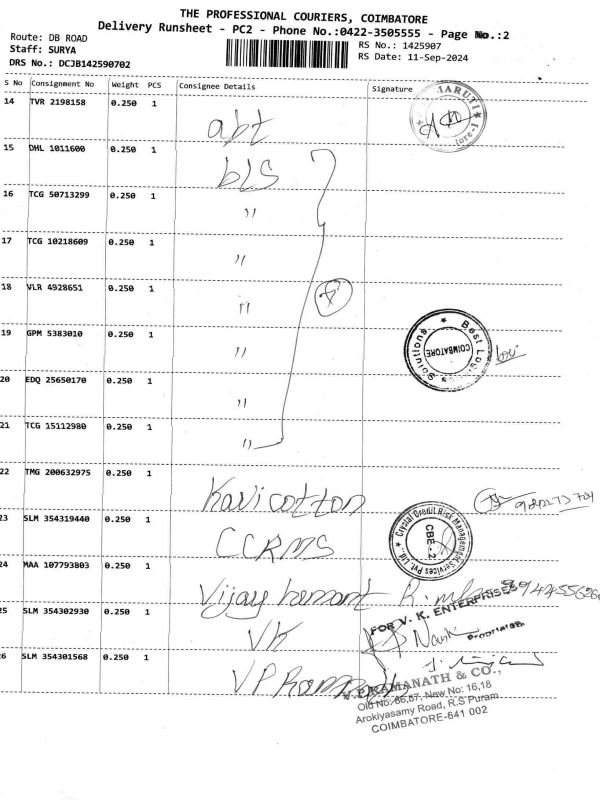 THE PROFESSIONAL COURIERS, COIMBATORE
Delivery Runsheet - PC2 - Phone No.:0422-3505555 - Page No.:2
Route: DB ROAD
Staff: SURYA
DRS No.: DCJB142590702
RS No.: 1425907
RS Date: 11-Sep-2024
S No Consignment No Weight PCS Consignee Details Signature
14 TVR 2198158 0.250 1 apt
MARUTI
ore-1
15 DHL 1011600 0.250 1 bLS
16 TCG 50713299 0.250 1 "
17 TCG 10218609 0.250 1 "
18 VLR 4928651 0.250 1 "
19 GPM 5383010 0.250 1 "
Best Log Solutions
COIMBATORE
20 EDQ 25650170 0.250 1 "
21 TCG 15112980 0.250 1 "
22 TMG 200632975 0.250 1 Kavi cotton
23 SLM 354319440 0.250 1 CCRMS
Crystal Credit Risk Management Services Pvt. Ltd.,
CBE-2
24 MAA 107793803 0.250 1 Vijay hemant
25 SLM 354302930 0.250 1 VK
FOR V. K. ENTERPRISES
Proprietor
26 SLM 354301568 0.250 1 VP Ramnath
RAMANATH & CO.,
Old No: 86,87, New No: 16,18
Arokiyasamy Road, R.S Puram
COIMBATORE-641 002